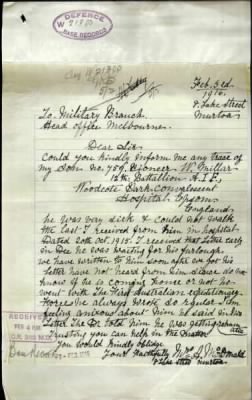 DEFENCE
W 21800
BASE RECORDS
Feb. 3rd
1916.
Lake Street
Murtoa
To Military Branch,
Head office Melbourne.
Dear Sir
Could you kindly inform me any trace of
my Son No. 789. Pioneer W. Millar
12th Battalion A.I.F.
Woodcote Park Convalescent
Hospital Epsom
England.
he was very sick & could not walk
the last I received from him in hospital
Dated 20th Oct. 1915. I received that letter early
in Dec he was waiting for his furlough
we have written to him soon after we got his
Letter have not heard from him since do not
know if he is coming home or not he
went with the First Australian expeditionary
Forces he always wrote so regular I am
feeling anxious about him he said in his
Letter the Dr told him he was getting
Trusting you can help in the matter
You would kindly oblige
Yours faithfully Mrs A. McDonald
Lake Street Murtoa
RECEIVED
FEB 4